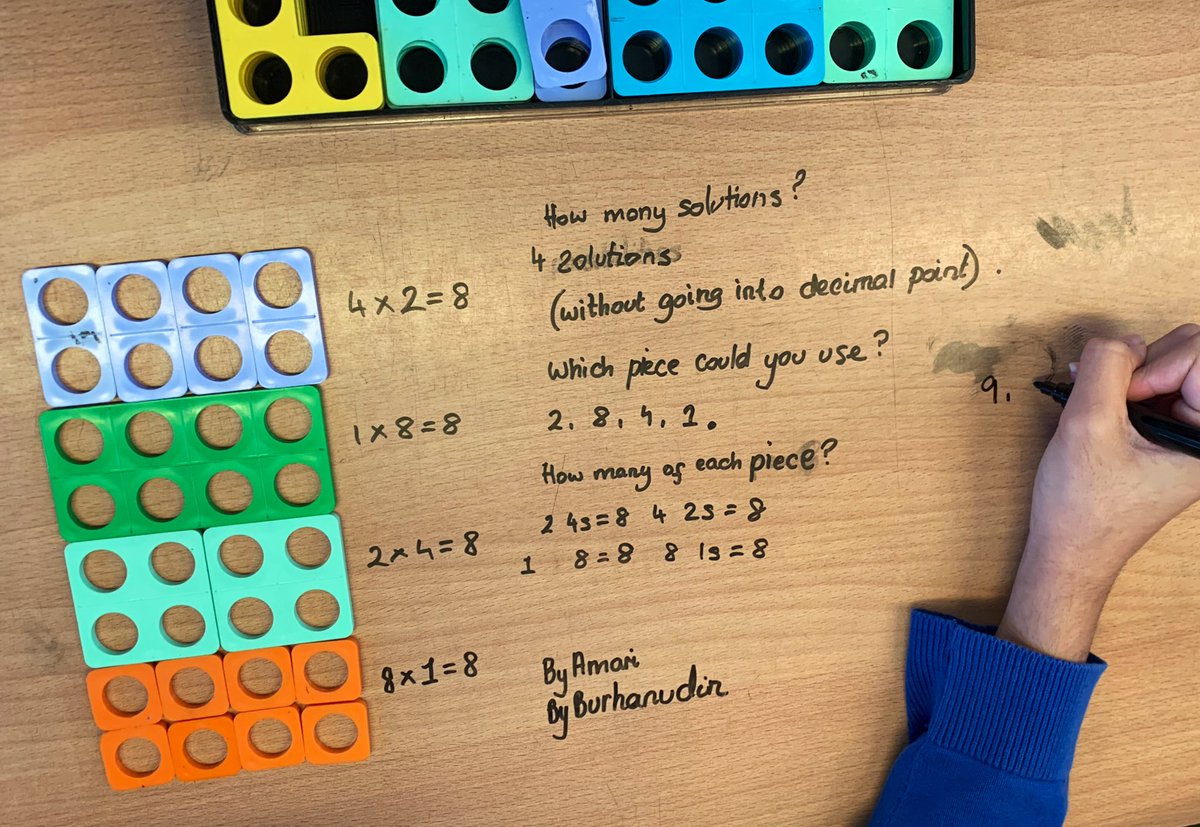 How many solutions?
4 Solutions
(without going into decimal point).
which piece could you use?
2, 8, 4, 1.
How many of each piece?
2 4s = 8 4 2s = 8
1 8 = 8 8 1s = 8
By Amari
By Burhanudin
4 × 2 = 8
1 × 8 = 8
2 × 4 = 8
8 × 1 = 8
9.